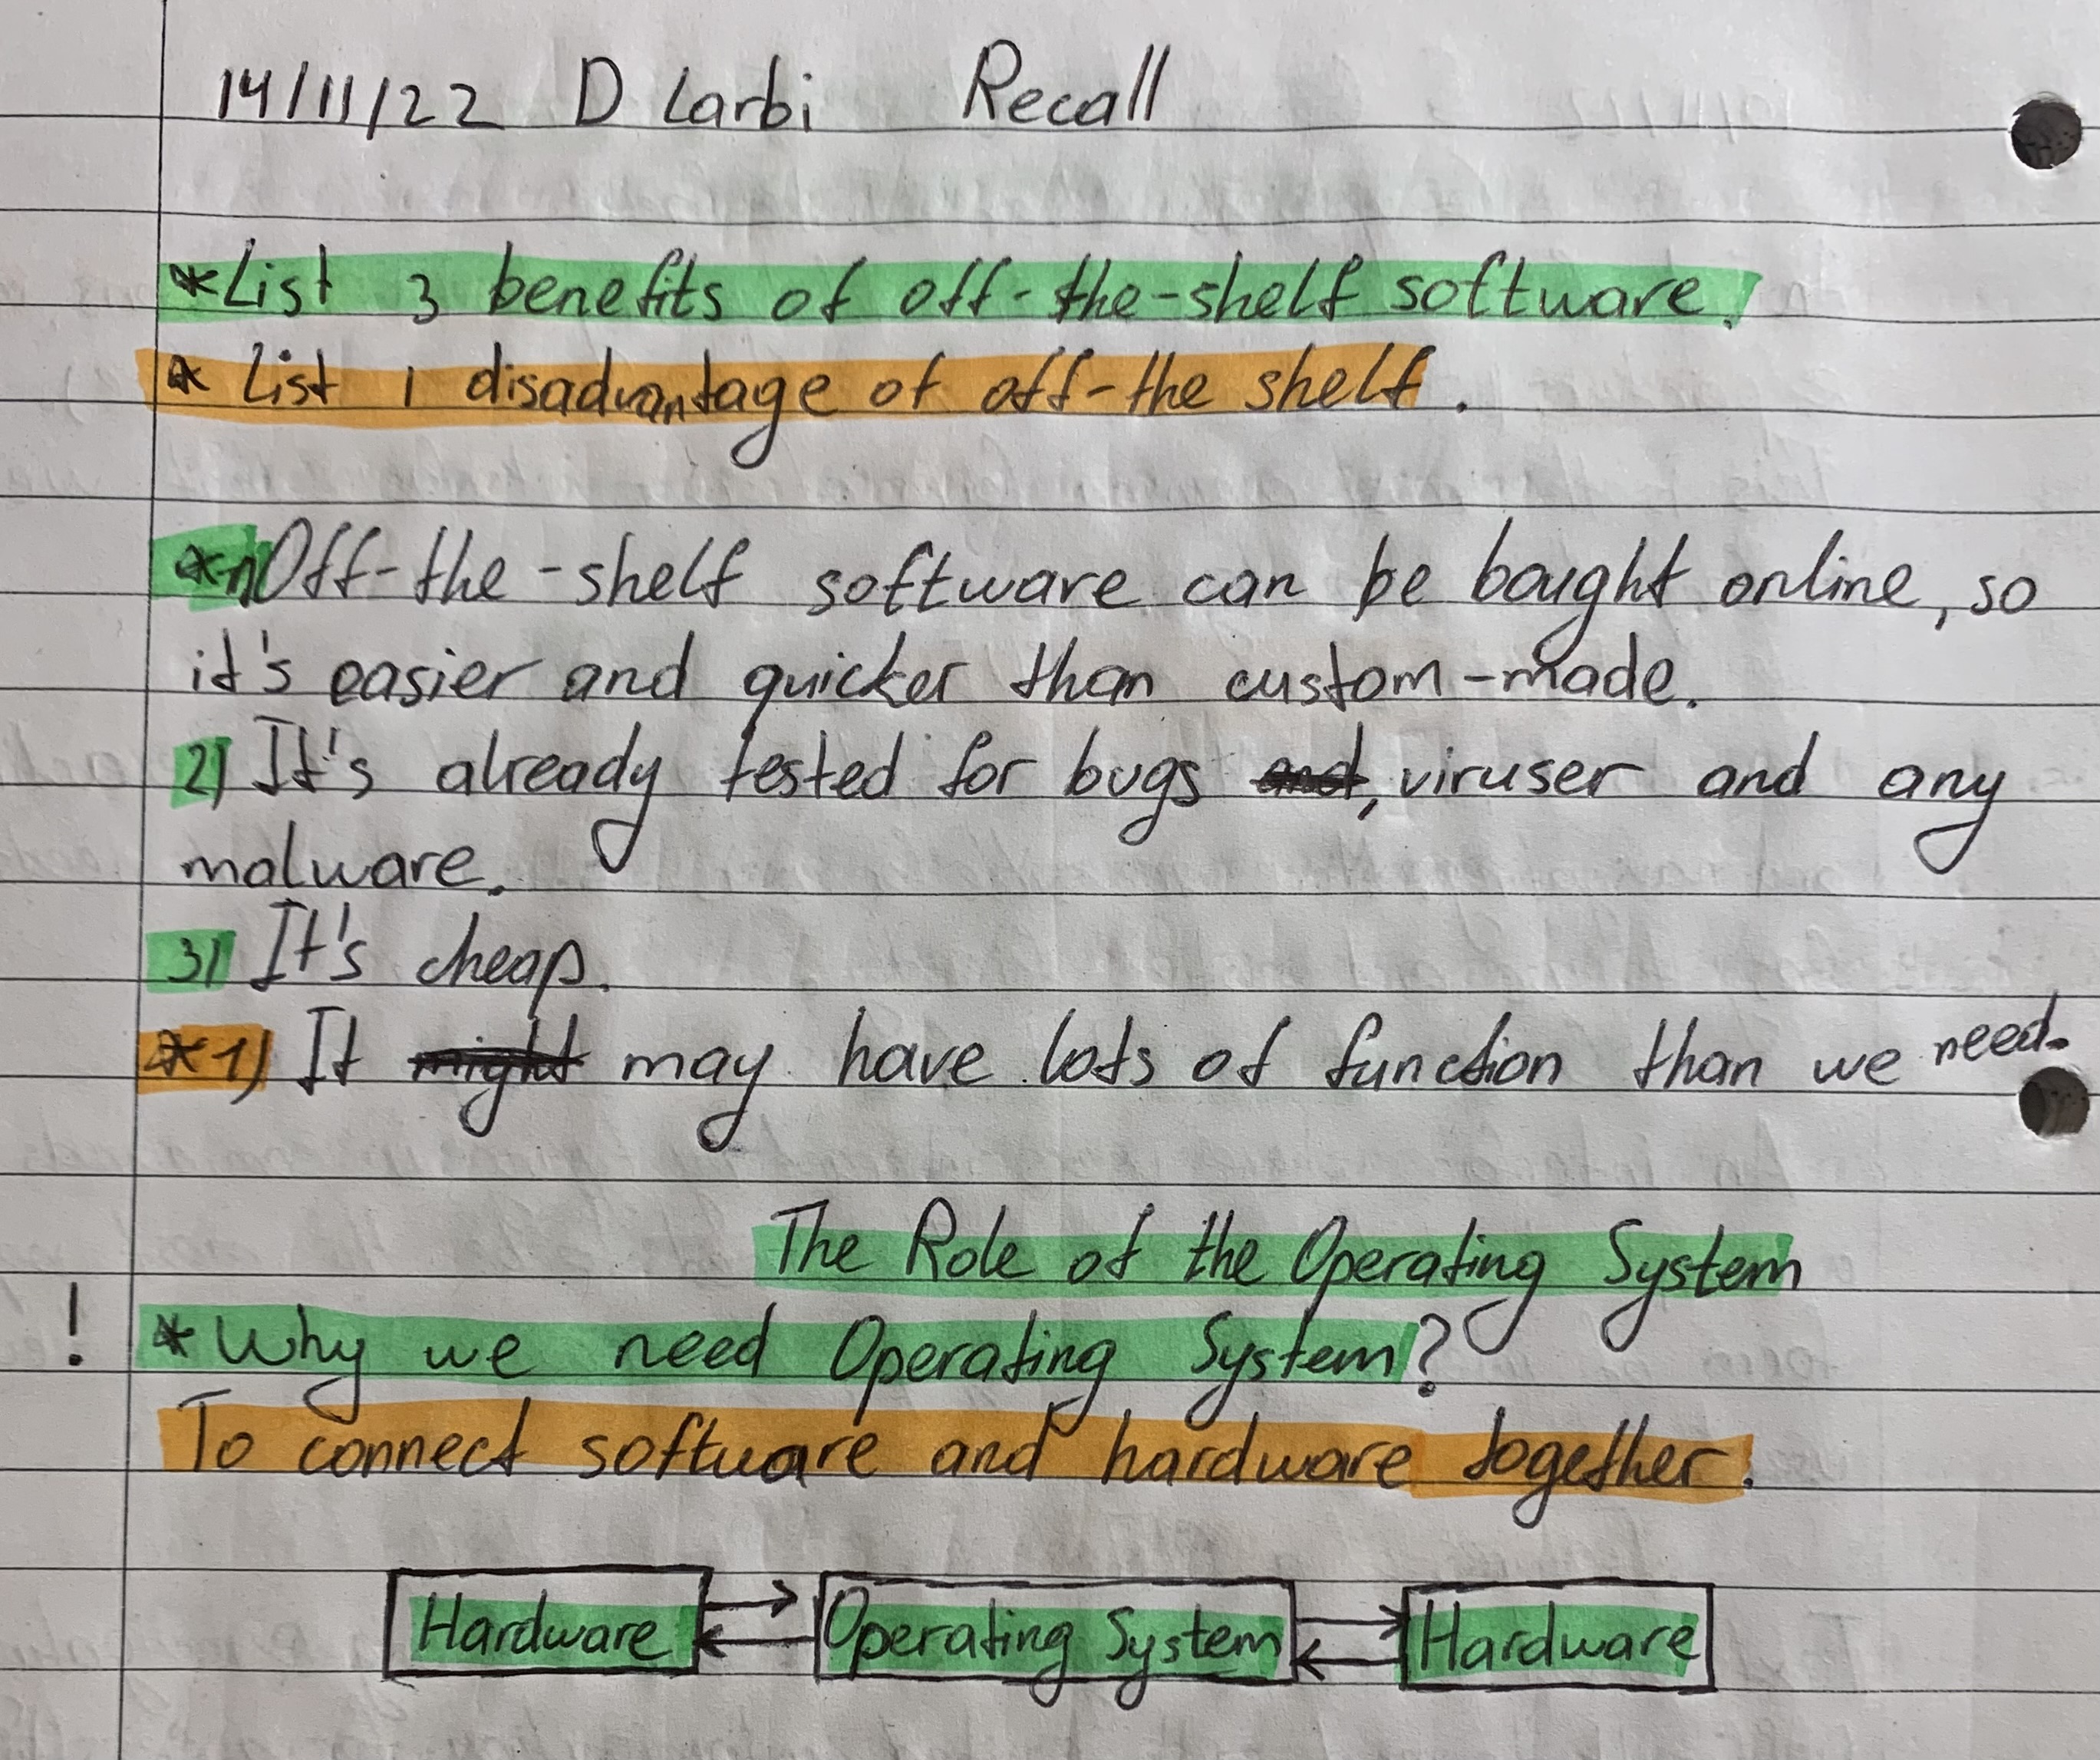 14/11/22 D Larbi Recall
*List 3 benefits of off-the-shelf software.
* List 1 disadvantage of off-the shelf.
*1) Off-the-shelf software can be bought online, so
it's easier and quicker than custom-made.
2) It's already tested for bugs and, viruser and any
malware.
3) It's cheap.
*1) It might may have lots of function than we need.
The Role of the Operating System
! *Why we need Operating System?
To connect software and hardware together.
Hardware Operating System Hardware